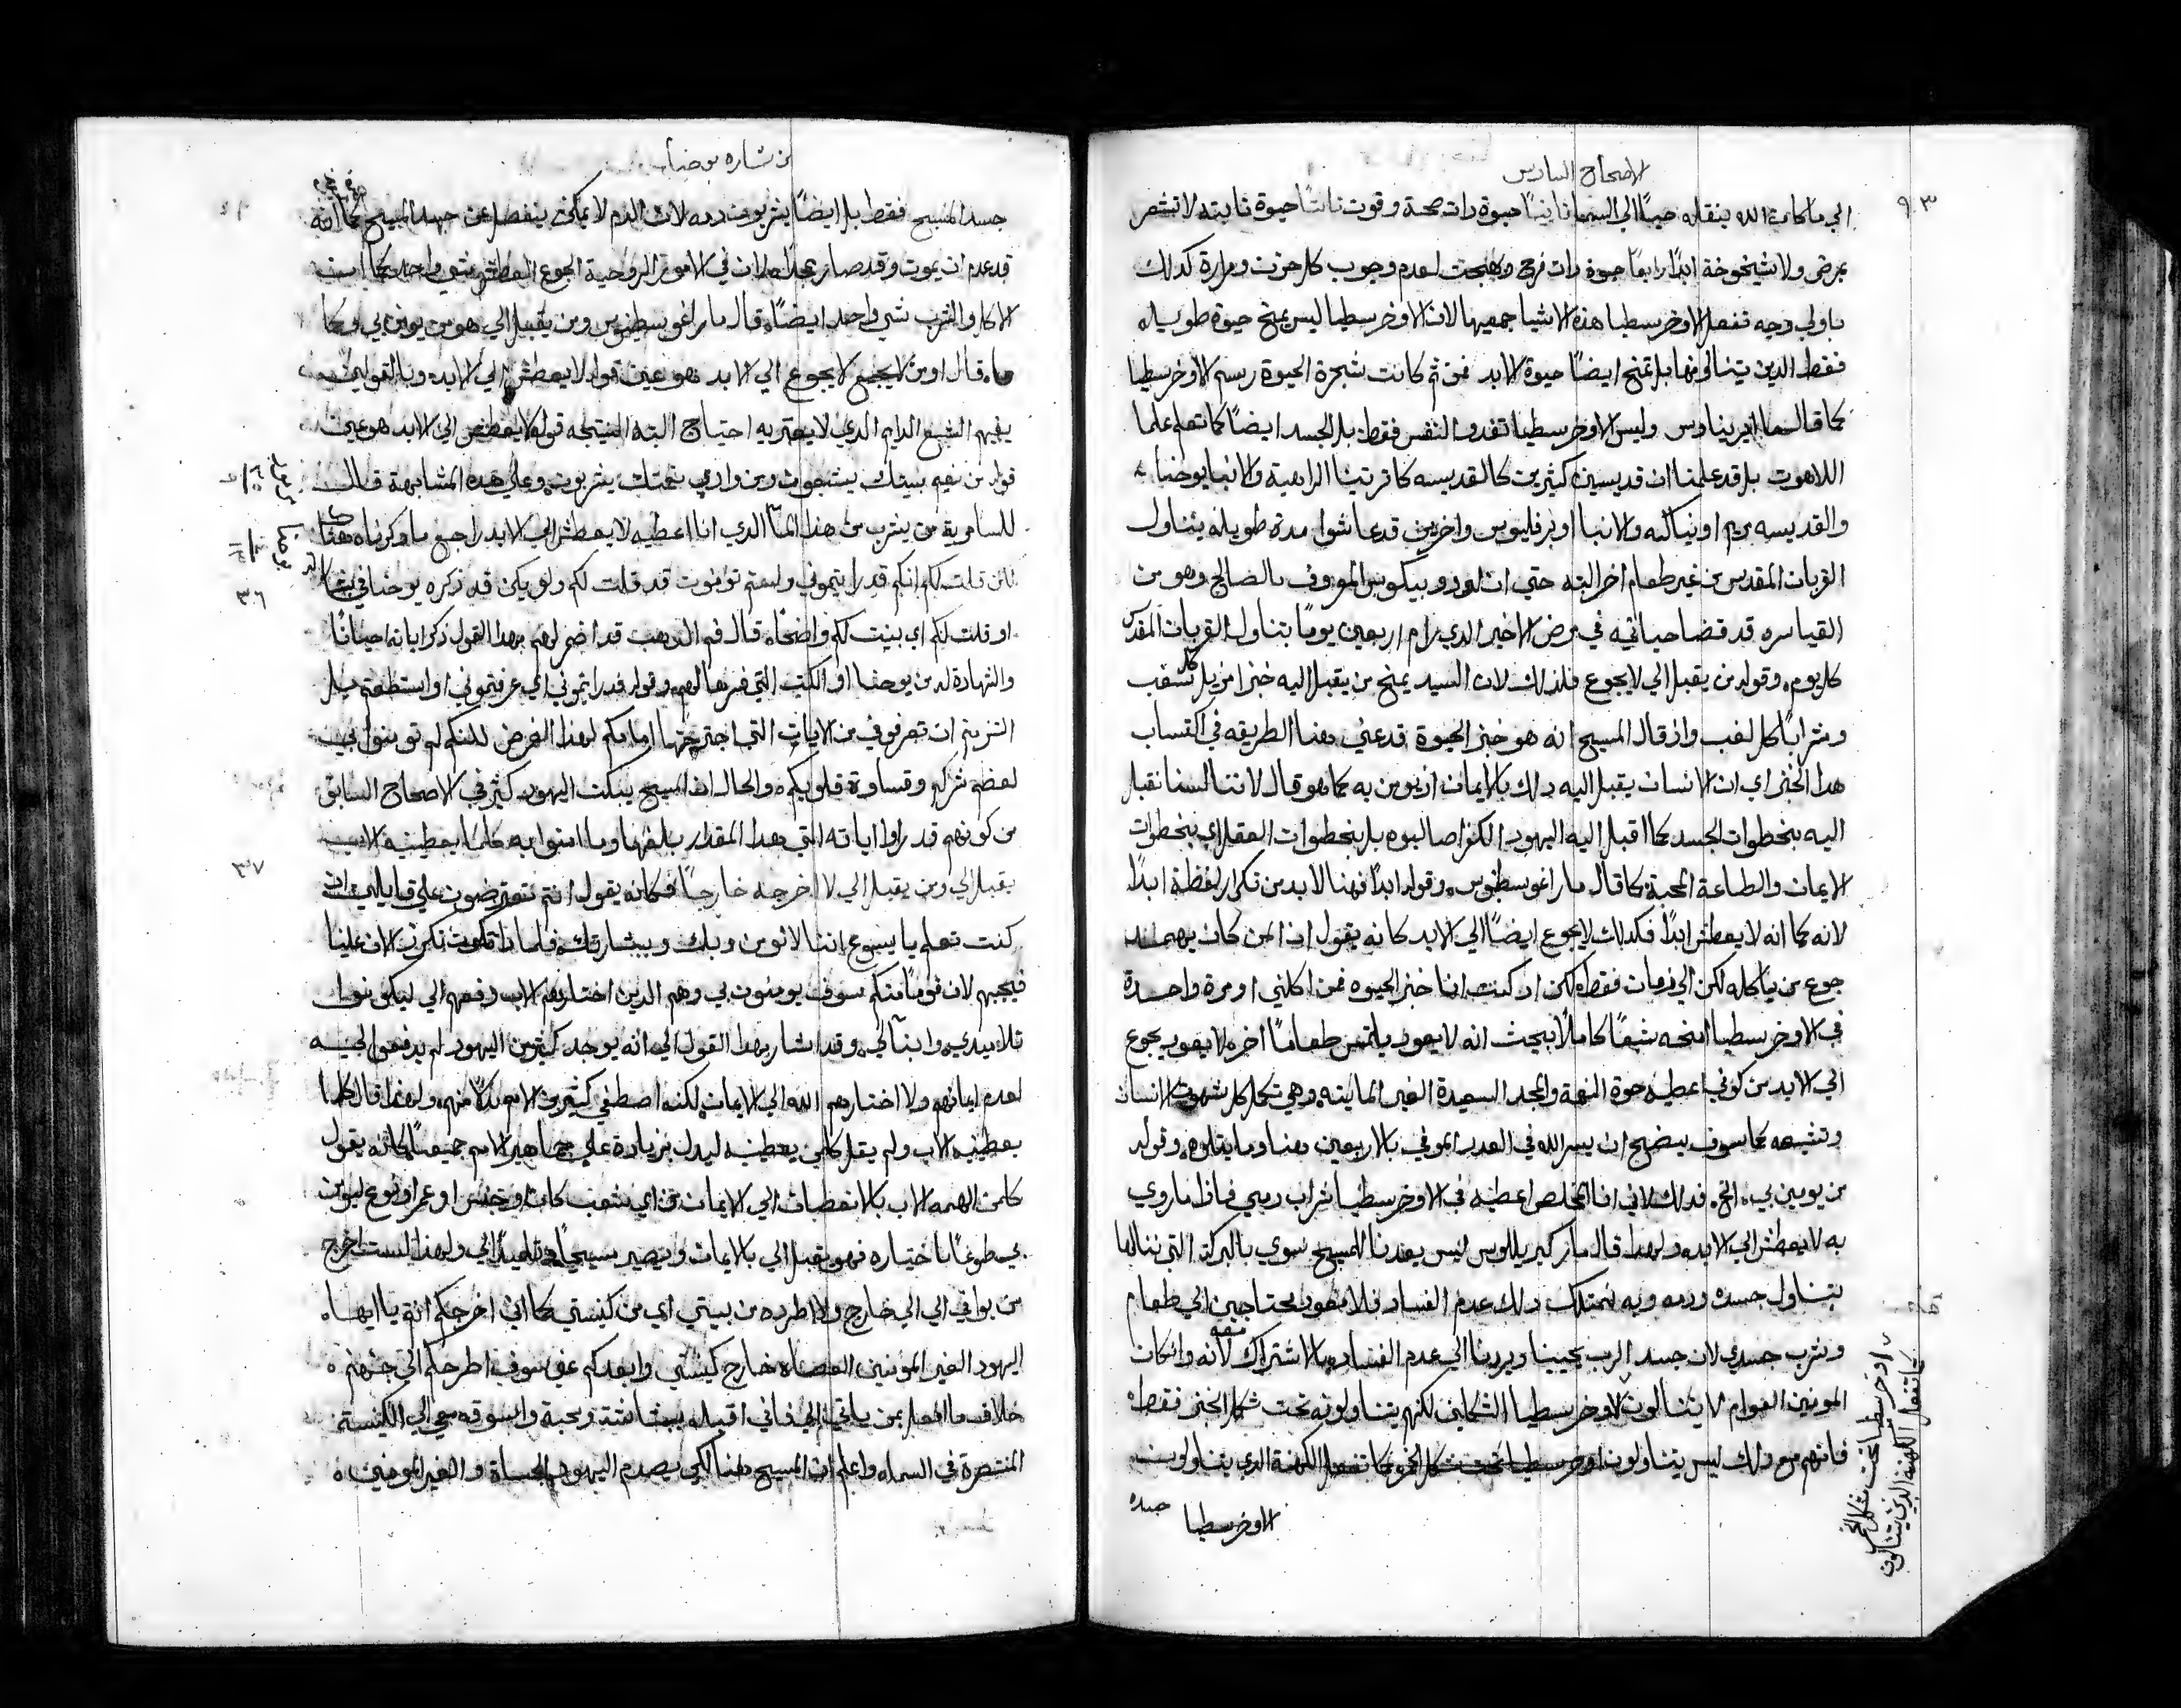 الاصحاح السادس
٩٣
الي ما كان الله ينقله حياً الي السما ثانياً حيوة دات صحة وقوت ثالثاً حيوة ثابته لا تشعر
بمرض ولا شيخوخة ابداً رابعاً حيوة دات فرح وبهجت لعدم وجوب كل حزن ومرارة كدلك
باولي وجه تفعل الاوخرسطيا هده الاشيا جميعها لان الاوخرسطيا ليس تمنح حيوة طويله
فقط الدين يتنالو منها بل تمنح ايضاً حيوة الابد فمن ثم كانت شجرة الحيوة رسم الاوخرسطيا
كما قال مار ايريناوس وليس الاوخرسطيا تغدو النفس فقط بل الجسد ايضاً كما تعلم علما
اللاهوت بل قد علمنا ان قديسين كثيرين كالقديسه كاترتينا الراهبة والانبا يوحنا
والقديسه مريم اونياكنه والانبا اوبرفليوس واخرين قد عاشوا مدة طويله بتناول
القربان المقدس من غير طعام اخر البته حتي ان لودوبيكوس المعروف بالصالح وهو من
القياسره قد قضا حياته في مرض الاخير الدي دام اربعين يوماً بتناول القربان المقدس
كل يوم، وقوله من يقبل الي لا يجوع فلدلك لان السيد يمنح من يقبل اليه خبزا مزيل كل تعب
وشراباً كل لغب واذ قال المسيح انه هو خبز الحيوة قد عني هنا الطريقه في اكتساب
هدا الخبز اي ان الانسان يقبل اليه دلك بالايمان اذ يومن به كما هو قال لاننا لسنا نقبل
اليه بخطوات الجسد كما اقبل اليه اليهود الكفرا صالبوه بل بخطوات العقل اي بخطوات
الايمان والطاعة المحبة كما قال مار اغوسطينوس، وقوله ابداً فهنا لابد من تكرار لفظة ابداً
لانه كما انه لا يعطش ابداً فكدلك لا يجوع ايضاً الي الابد كانه يقول ان المن كان يهمد
جوع من ياكله لكن الي زمان فقط لكن اد كنت انا خبز الحيوه فمن اكلني او مرة واحدة
في الاوخرسطيا امنحه شبعاً كاملاً بحيث انه لا يعود يلتمس طعاماً اخر لا يعود يجوع
الي الابد من كوني اعطيه حوة النعمة والمجد السعيدة الغير المايته وهي تكمل كل شهوة الانسان
وتشبعه كما سوف يضح ان يسر الله في العدد الموفي بالاربعين هنا وما يتلوه، وقوله
من يومن بي، الخ، فدلك لاني انا المخلص اعطيه في الاوخرسطيا شراب دمي فاذا ما روي
به لا يعطش الي الابد، ولهدا قال مار كيريللوس ليس يعدنا المسيح سوي بالبركة التي ننالها
بتناول جسده ودمه وبه نمتلك دلك عدم الفساد فلا نعود محتاجين الي طعام
وشرب جسدي لان جسد الرب يحيينا ويردنا الي عدم الفساد بالاشتراك معه لانه وان كان
المومنين العوام لا يتنالون الاوخرسطيا الشكلين لكنهم يتناولونه تحت شكل الخبز فقط
فانهم مع دلك ليس يتناولون اوخرسطيا تحت شكل الخمر كما تفعل الكهنة الدي يتناولون
الاوخرسطيا جسد
اوخرسطيا تحت شكل الخمر
كما تفعل الكهنة الذين يتنالون
من بشاره يوحنا
جسد المسيح فقط بل ايضاً يشربون دمه لان الدم لا يمكن ينفصل عن جسد المسيح كما انه
قد عدم ان يموت وقد صار مجداً لان في الامور الروحية الجوع والعطش شي واحد كما ان
الاكل والشرب شي واحد ايضاً، قال مار اغوسطينوس ومن يقبل الي هو من يومن بي وكما
قال او من لا يجوع الي الابد هو عين قوله لا يعطش الي الابد، وبالقولين
يفهم الشبع الدايم الدي لا يعتريه احتياج البته المنتجه قوله لا يعطش الي الابد هو عين
قوله من نعيم بيتك يستقون ومن وادي نعمتك يشربون، وعلي هده المشابهة قال
للسامرية من يشرب من هدا الما الدي انا اعطيه لا يعطش الي الابد راجع ما دكرناه هناك
٣٦
لكن قلت لكم انكم قد رايتموني ولستم تومنون قد قلت لكم ولو يكن قد ذكره يوحنا في
او قلت لكم اي بينت لكم واضحاً، قال فم الدهب قد اضمر لهم بهدا القول ذكر اياته احياناً
والشهادة له من يوحنا او الكتب التي فسرها لهم، وقوله قد رايتموني اي عرفتموني او استطعتم بل
التزمتم ان تعرفوني من الايات التي اجترحتها امامكم لهدا الغرض لكنكم لم تومنوا بي
لعظم شركم وقساوة قلوبكم، والحال ان المسيح يبكت اليهود كثير في الاصحاح السابق
من كونهم قد راوا اياته التي هدا المقدار بلغها وما امنوا به كلما يعطينيه الاب
٣٧
يقبل الي ومن يقبل الي لا اخرجه خارجاً فكانه يقول انتم تعترضون علي قايلين ان
كنت تعلم يا يسوع اننا لا نومن وبك وببشارتك فلمادا تكرر الان علينا
فيجيبهم لان قوماً منكم سوف يومنون بي وهم الدين اختارهم الاب ودفعهم الي ليكونوا
تلاميدي وابنا لي، وقد اشار بهدا القول الي انه يوجد كثير من اليهود لم يدفعوا اليه
لعدم ايمانهم ولا اختارهم الله الي الايمان لكنه اصطفي كثير من الامم بدلاً منهم، ولهدا قال كلما
يعطينيه الاب ولم يقل كلمن يعطينيه ليدل بزيادة علي جماهير الامم جميعاً كانه يقول
كلمن الهمه الاب بالانعطاف الي الايمان من اي شعب كان او جنس او عمر او نوع ليومن
بي طوعاً باختياره فهو يقبل الي بالايمان ويصير مسيحياً وتلميداً لي ولهدا لست اخرج
من يوافي الي الي خارج ولا اطرده من بيتي اي من كنيستي كما اني اخرجكم انتم يا ايها
اليهود الغير المومنين العصاه خارج كنيستي وابعدكم عني سوف اطرحكم الي جهنم
خلاف ما افعل بمن ياتي الي فاني اقبله ببشاشة ومحبة واسوقه معي الي الكنيسة
المنتصرة في السما، واعلم ان المسيح هنا لكي يصدم اليهود الجساة والغير المومنين